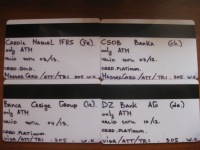 Credis Manuel IFRS (Fr)
only ATM
VALID UNTIL 08/12.
CRED. GOLD.
MASTERCARD/ATT/TRI. 305 W.K.
CSOB Banka (ch)
only ATM
VALID UNTIL 03/12.
CRED. PLATINUM.
MASTERCARD/ATT/TRI. 305. W.K.
Banca Carige Group (it)
only ATM
VALID UNTIL 04/13.
CRED. PLATINUM.
VISA/ATT/TRI. 305 W.K.
DZ Bank AG (de)
only ATM
VALID UNTIL 10/12.
CRED. PLATINUM.
VISA/ATT/TRI. 305. W.K.